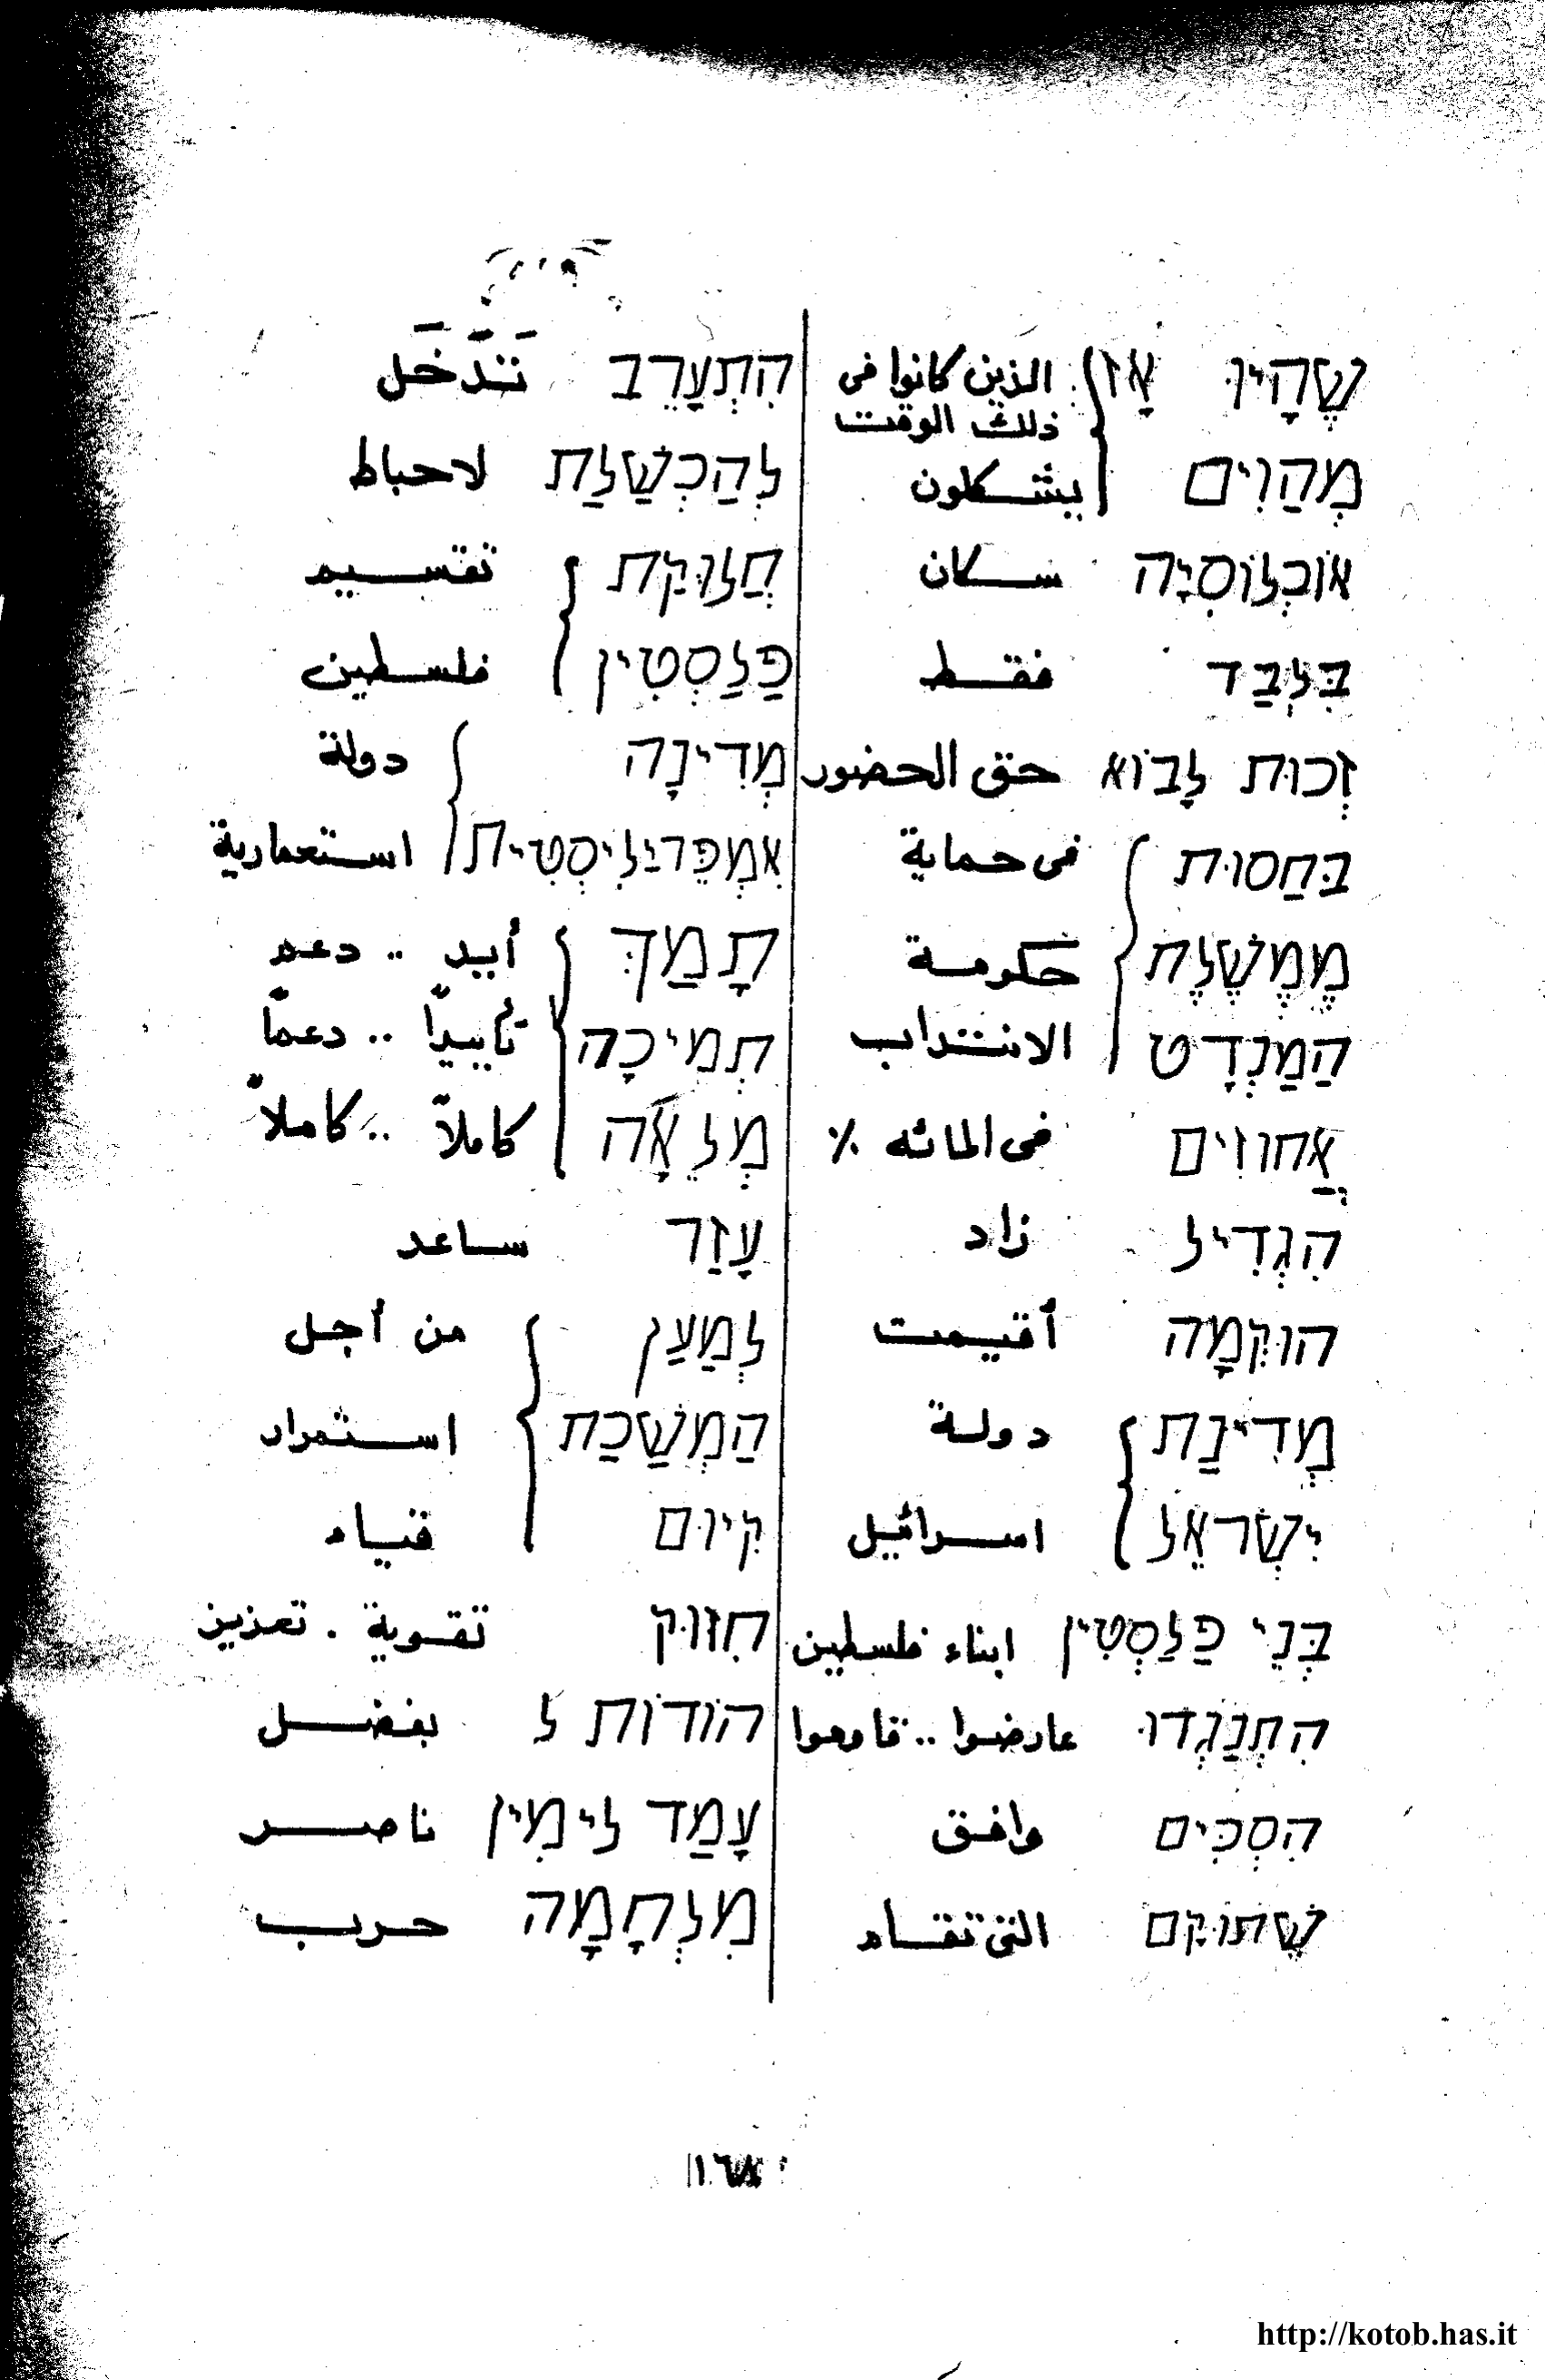 שֶׁהָיוּ אָז } الذين كانوا فى ذلك الوقت
מְהַוִים } يشكلون
אוֹכְלוֹסִיָה سكان
בִּלְבַד فقط
זְכוּת לָבוֹא حق الحضور
בְּחַסוּת } فى حماية
מֶמְשֶׁלֶת } حكومة
הַמַנְדָט } الانتداب
אֲחוּזִים فى المائه ٪
הִגְדִיל زاد
הוּקְמָה أقيمت
מְדִינַת } دولة
יִשְׂרָאֵל } اسرائيل
בְּנֵי פַּלַסְטִין ابناء فلسطين
הִתְנַגְדוּ عارضوا .. قاوموا
הִסְכִּים وافق
שֶׁתוּקַם التى تقام
הִתְעָרֵב تَدَّخَل
לְהַכְשָׁלַת لاحباط
חֲלוּקַת } تقسيم
פַּלַסְטִין } فلسطين
מְדִינָה } دولة
אִמְפֵּרְיָלִיסְטִית } استعمارية
תָמַךְ } أيد .. دعم
תְמִיכָה } تأييداً .. دعماً
מְלֵאָה } كاملاً .. كاملاً
עָזַר ساعد
לְמַעַן } من أجل
הַמְשָׁכַת } استمرار
קִיוּם } قيام
חִזוּק تقوية . تعزيز
הוֹדוֹת ל بفضل
עָמַד לִימִין ناصر
מִלְחָמָה حرب
١٦٨
http://kotob.has.it